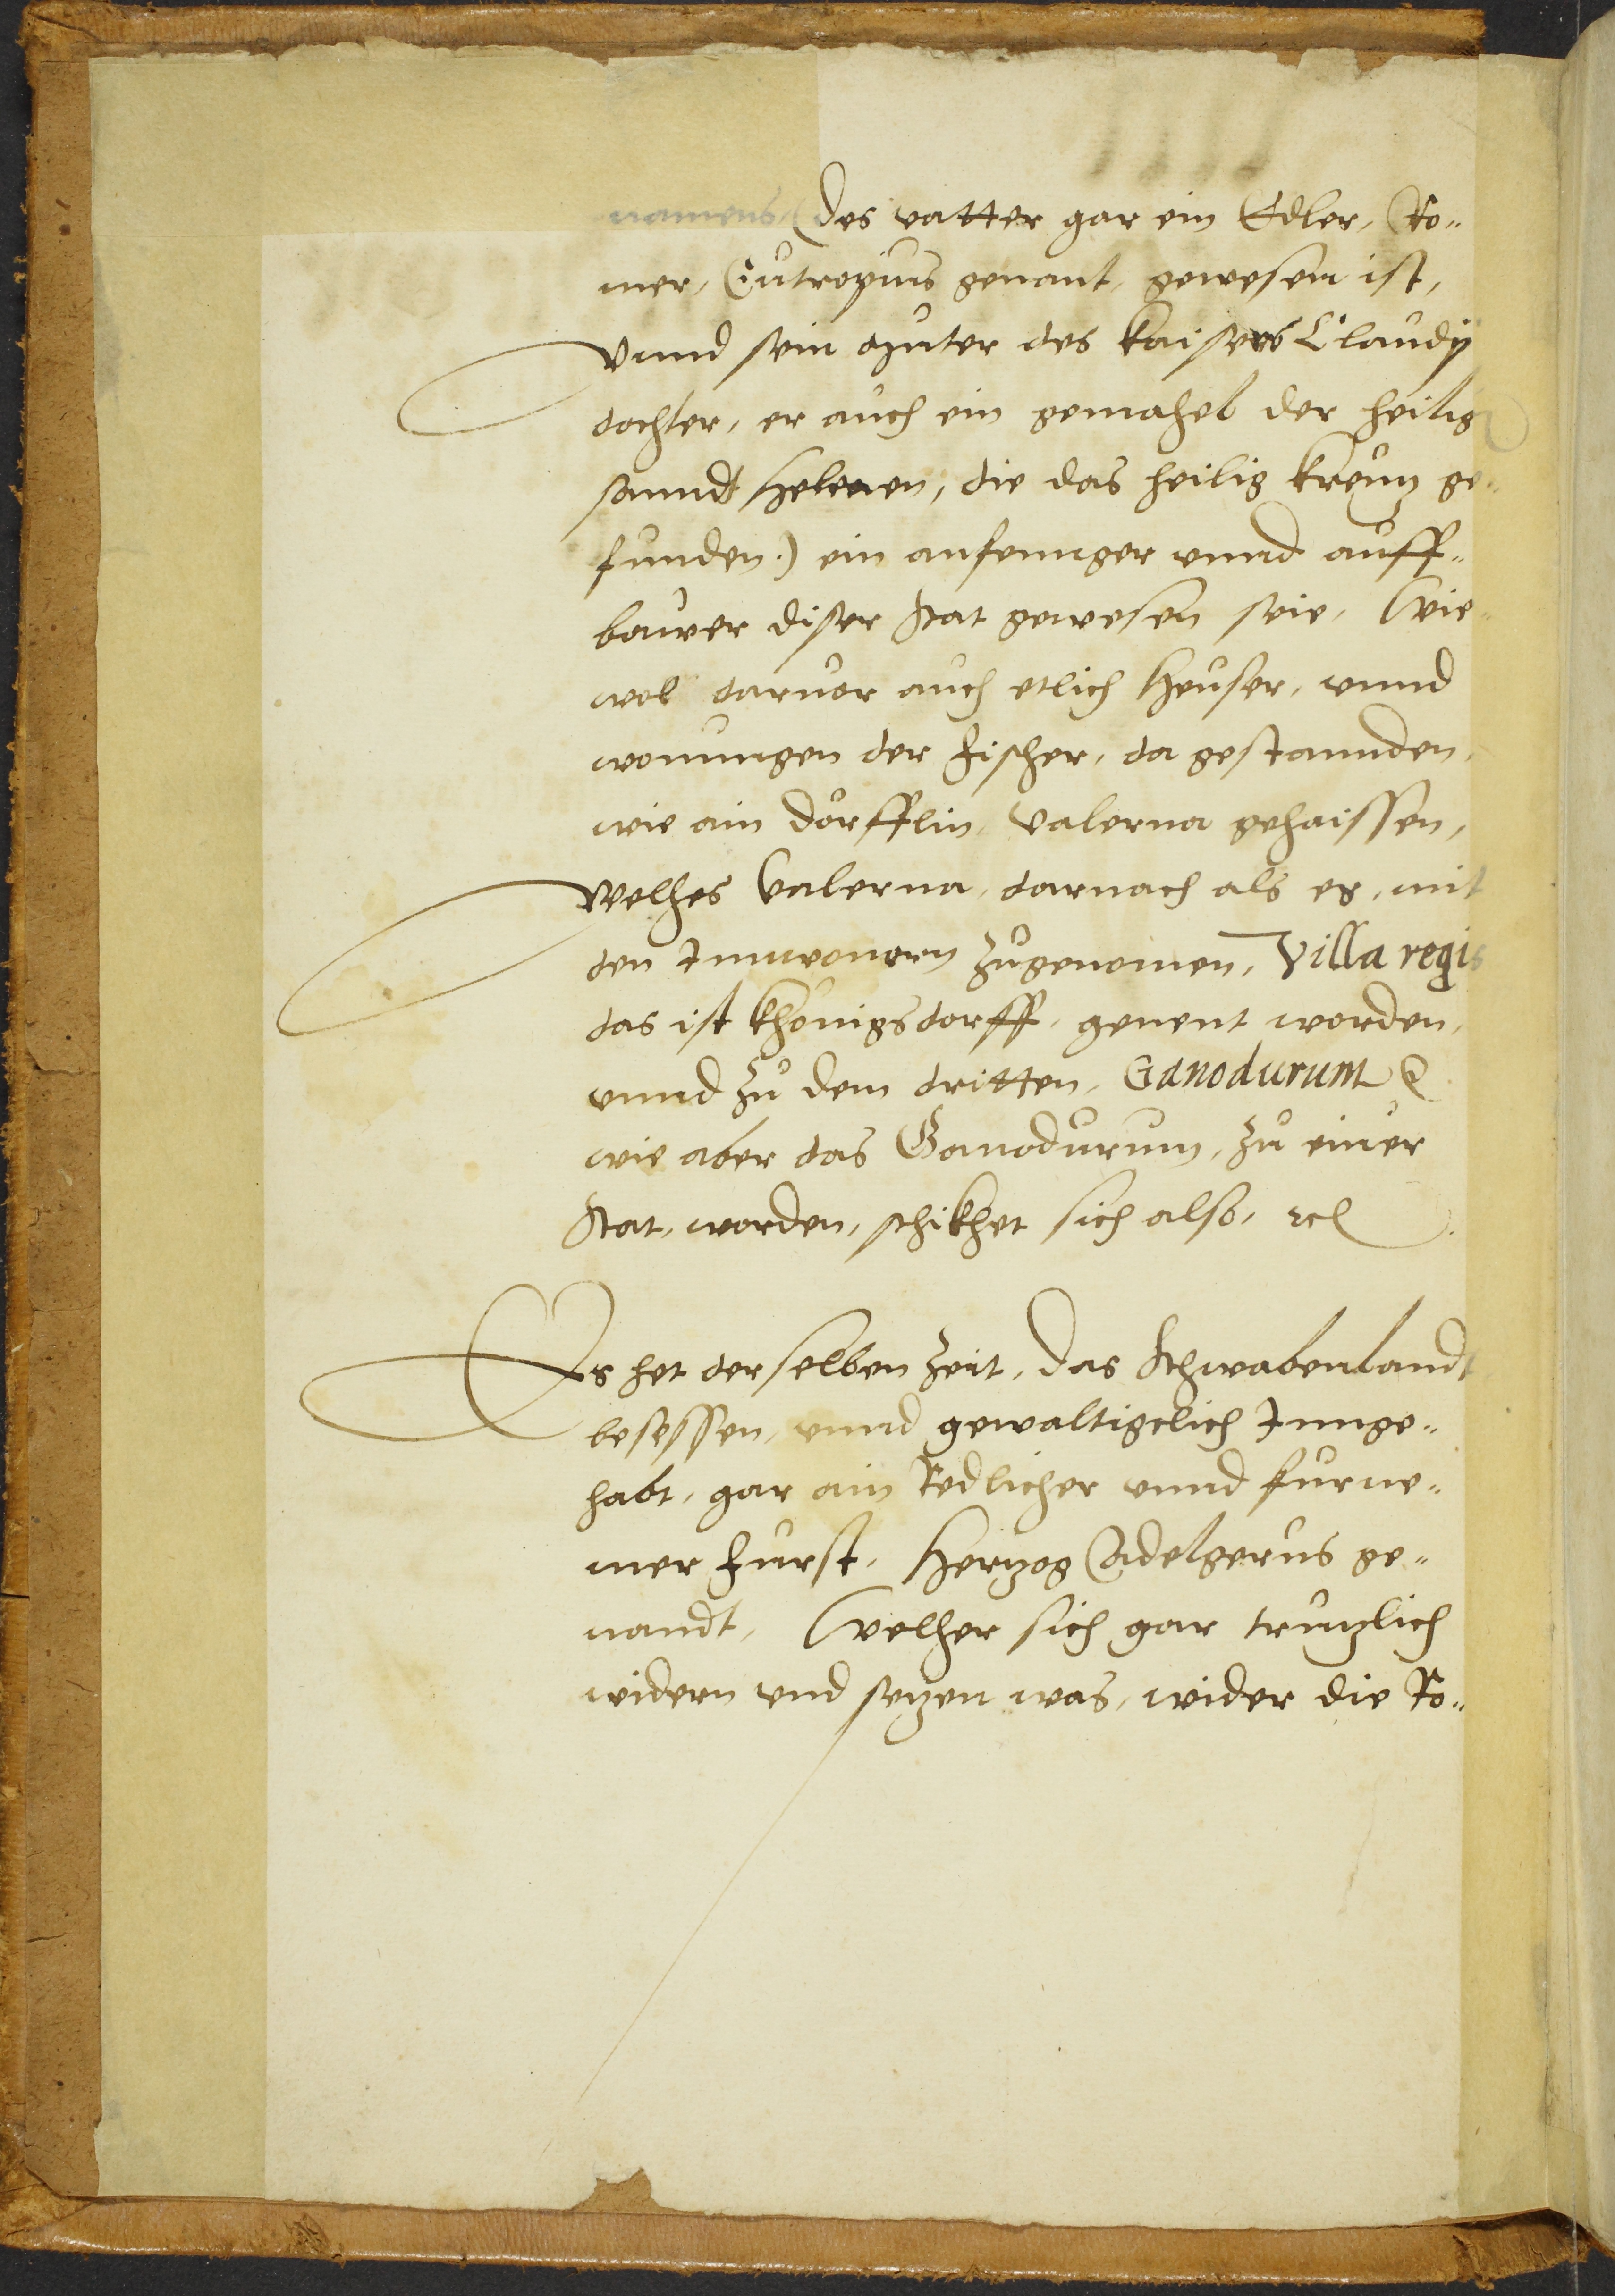 namens, (des vatter gar ein Edler, Ro„
mer, Eutropius genant, gewesen ist,
Vnnd sein Muter des kaisers Claudÿ
dochter, er auch ein gemahel der heilig
sanndt Helenen, die das heilig kreuz ge„
funden.) ein anfennger vnnd auff„
bauwer diser Stat gewesen seie, Wie„
wol daruor auch etlich Heuser, vnnd
wonungen der Fischer, da gestannden,
wie ain dörfflin, Valerna gehaissen,
Welhes Valerna, darnach als es, mit
den Innwonern zugenomen, Villa regis
das ist Khönigsdorff, genent worden,
vnnd zu dem dritten, Ganodurum
wie aber das Ganodurum, zu einer
Stat, worden, schikhet sich also, etc
Es het derselben Zeit, das Schwabenlandt
besessen, vnnd gewaltigclich Innge„
habt, gar ain Redlicher vnnd furne„
mer Furst, Herzog Adelgerus ge„
nandt, Welher sich gar truzlich
widern vnd sezen was, wider die Ro„